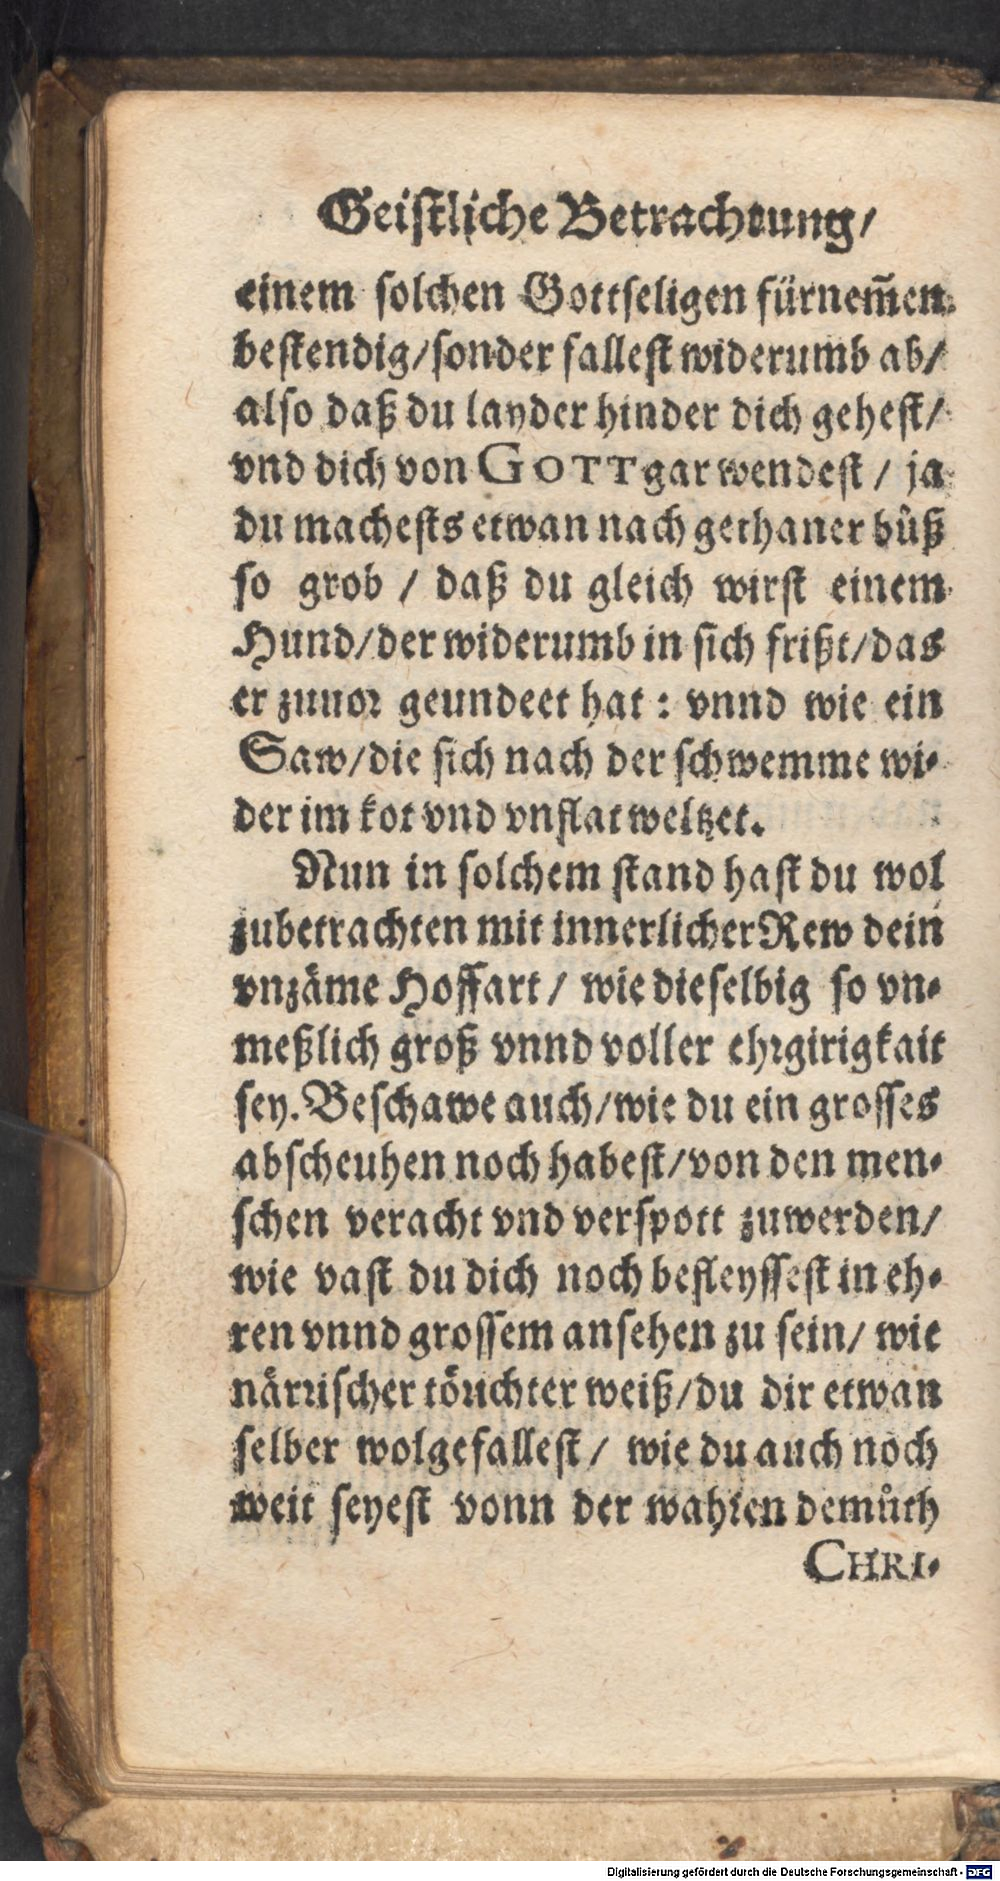 Geistliche Betrachtung/
einem solchen Gottseligen fürnem̃en
bestendig/sonder fallest widerumb ab/
also daß du layder hinder dich gehest/
vnd dich von GOTT gar wendest / ja
du machests etwan nach gethaner bůß
so grob / daß du gleich wirst einem
Hund/der widerumb in sich frißt/das
er zuuor geundeet hat : vnnd wie ein
Saw/die sich nach der schwemme wi-
der im kot vnd vnflat weltzet.
Nun in solchem stand hast du wol
zubetrachten mit innerlicher Rew dein
vnzäme Hoffart / wie dieselbig so vn-
meßlich groß vnnd voller ehrgirigkait
sey. Beschawe auch/wie du ein grosses
abscheuhen noch habest/von den men-
schen veracht vnd verspott zuwerden/
wie vast du dich noch befleyssest in eh-
ren vnnd grossem ansehen zu sein/ wie
närrischer törichter weiß/du dir etwan
selber wolgefallest / wie du auch noch
weit seyest vonn der wahren demůth
CHRI-
Digitalisierung gefördert durch die Deutsche Forschungsgemeinschaft - DFG